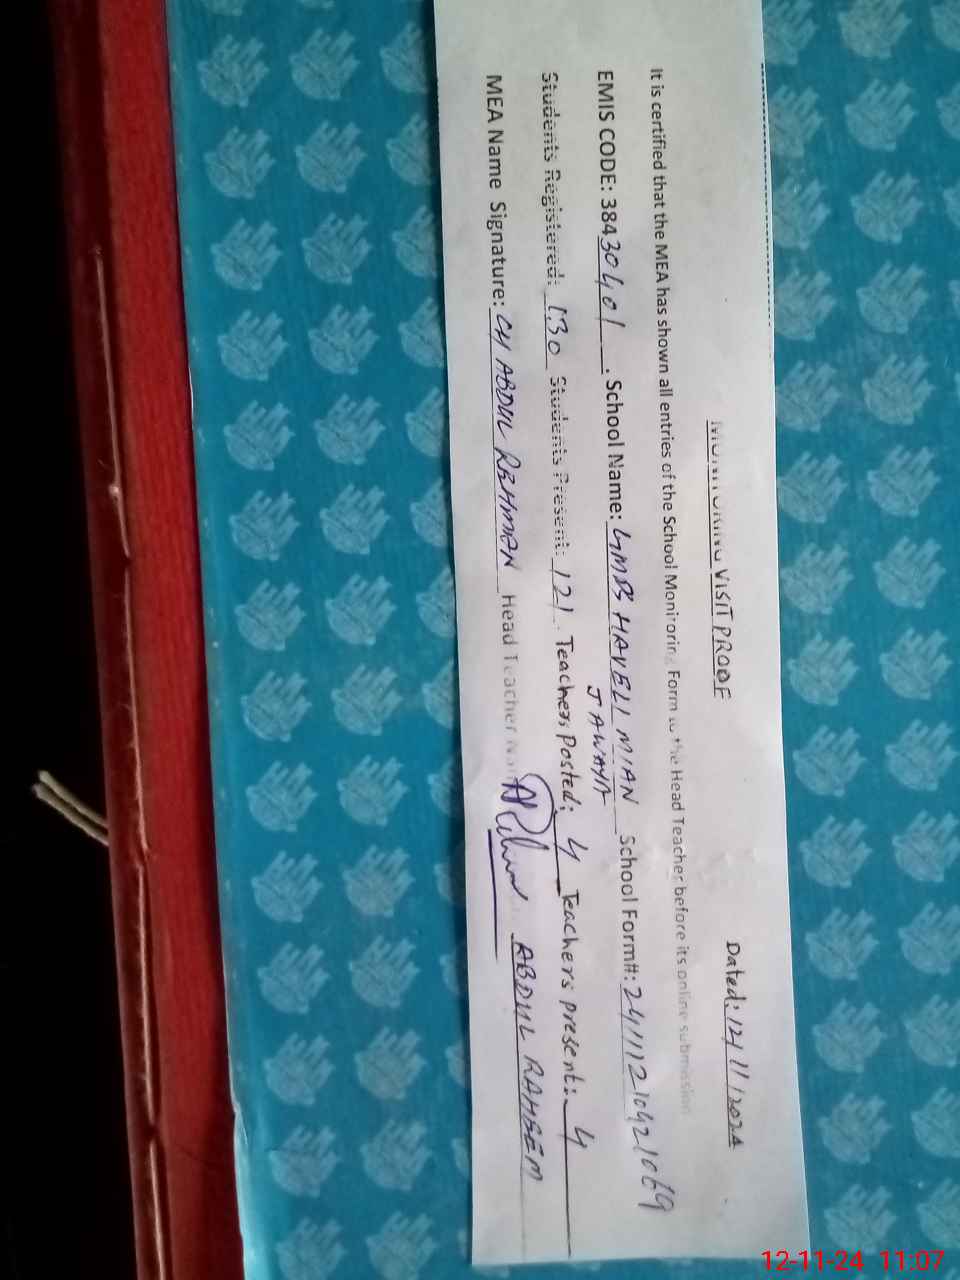 MONITORING VISIT PROOF
Dated: 12/11/2024
It is certified that the MEA has shown all entries of the School Monitoring Form to the Head Teacher before its online submission
EMIS CODE: 38430401. School Name: GMBS HAVELI MIAN JAWAYA School Form#: 24111210421069
Students Registered: 130 Students Present: 121 Teachers Posted: 4 Teachers present: 4
MEA Name Signature: CH ABDUL REHMAN Head Teacher ABDUL RAHEEM
12-11-24 11:07